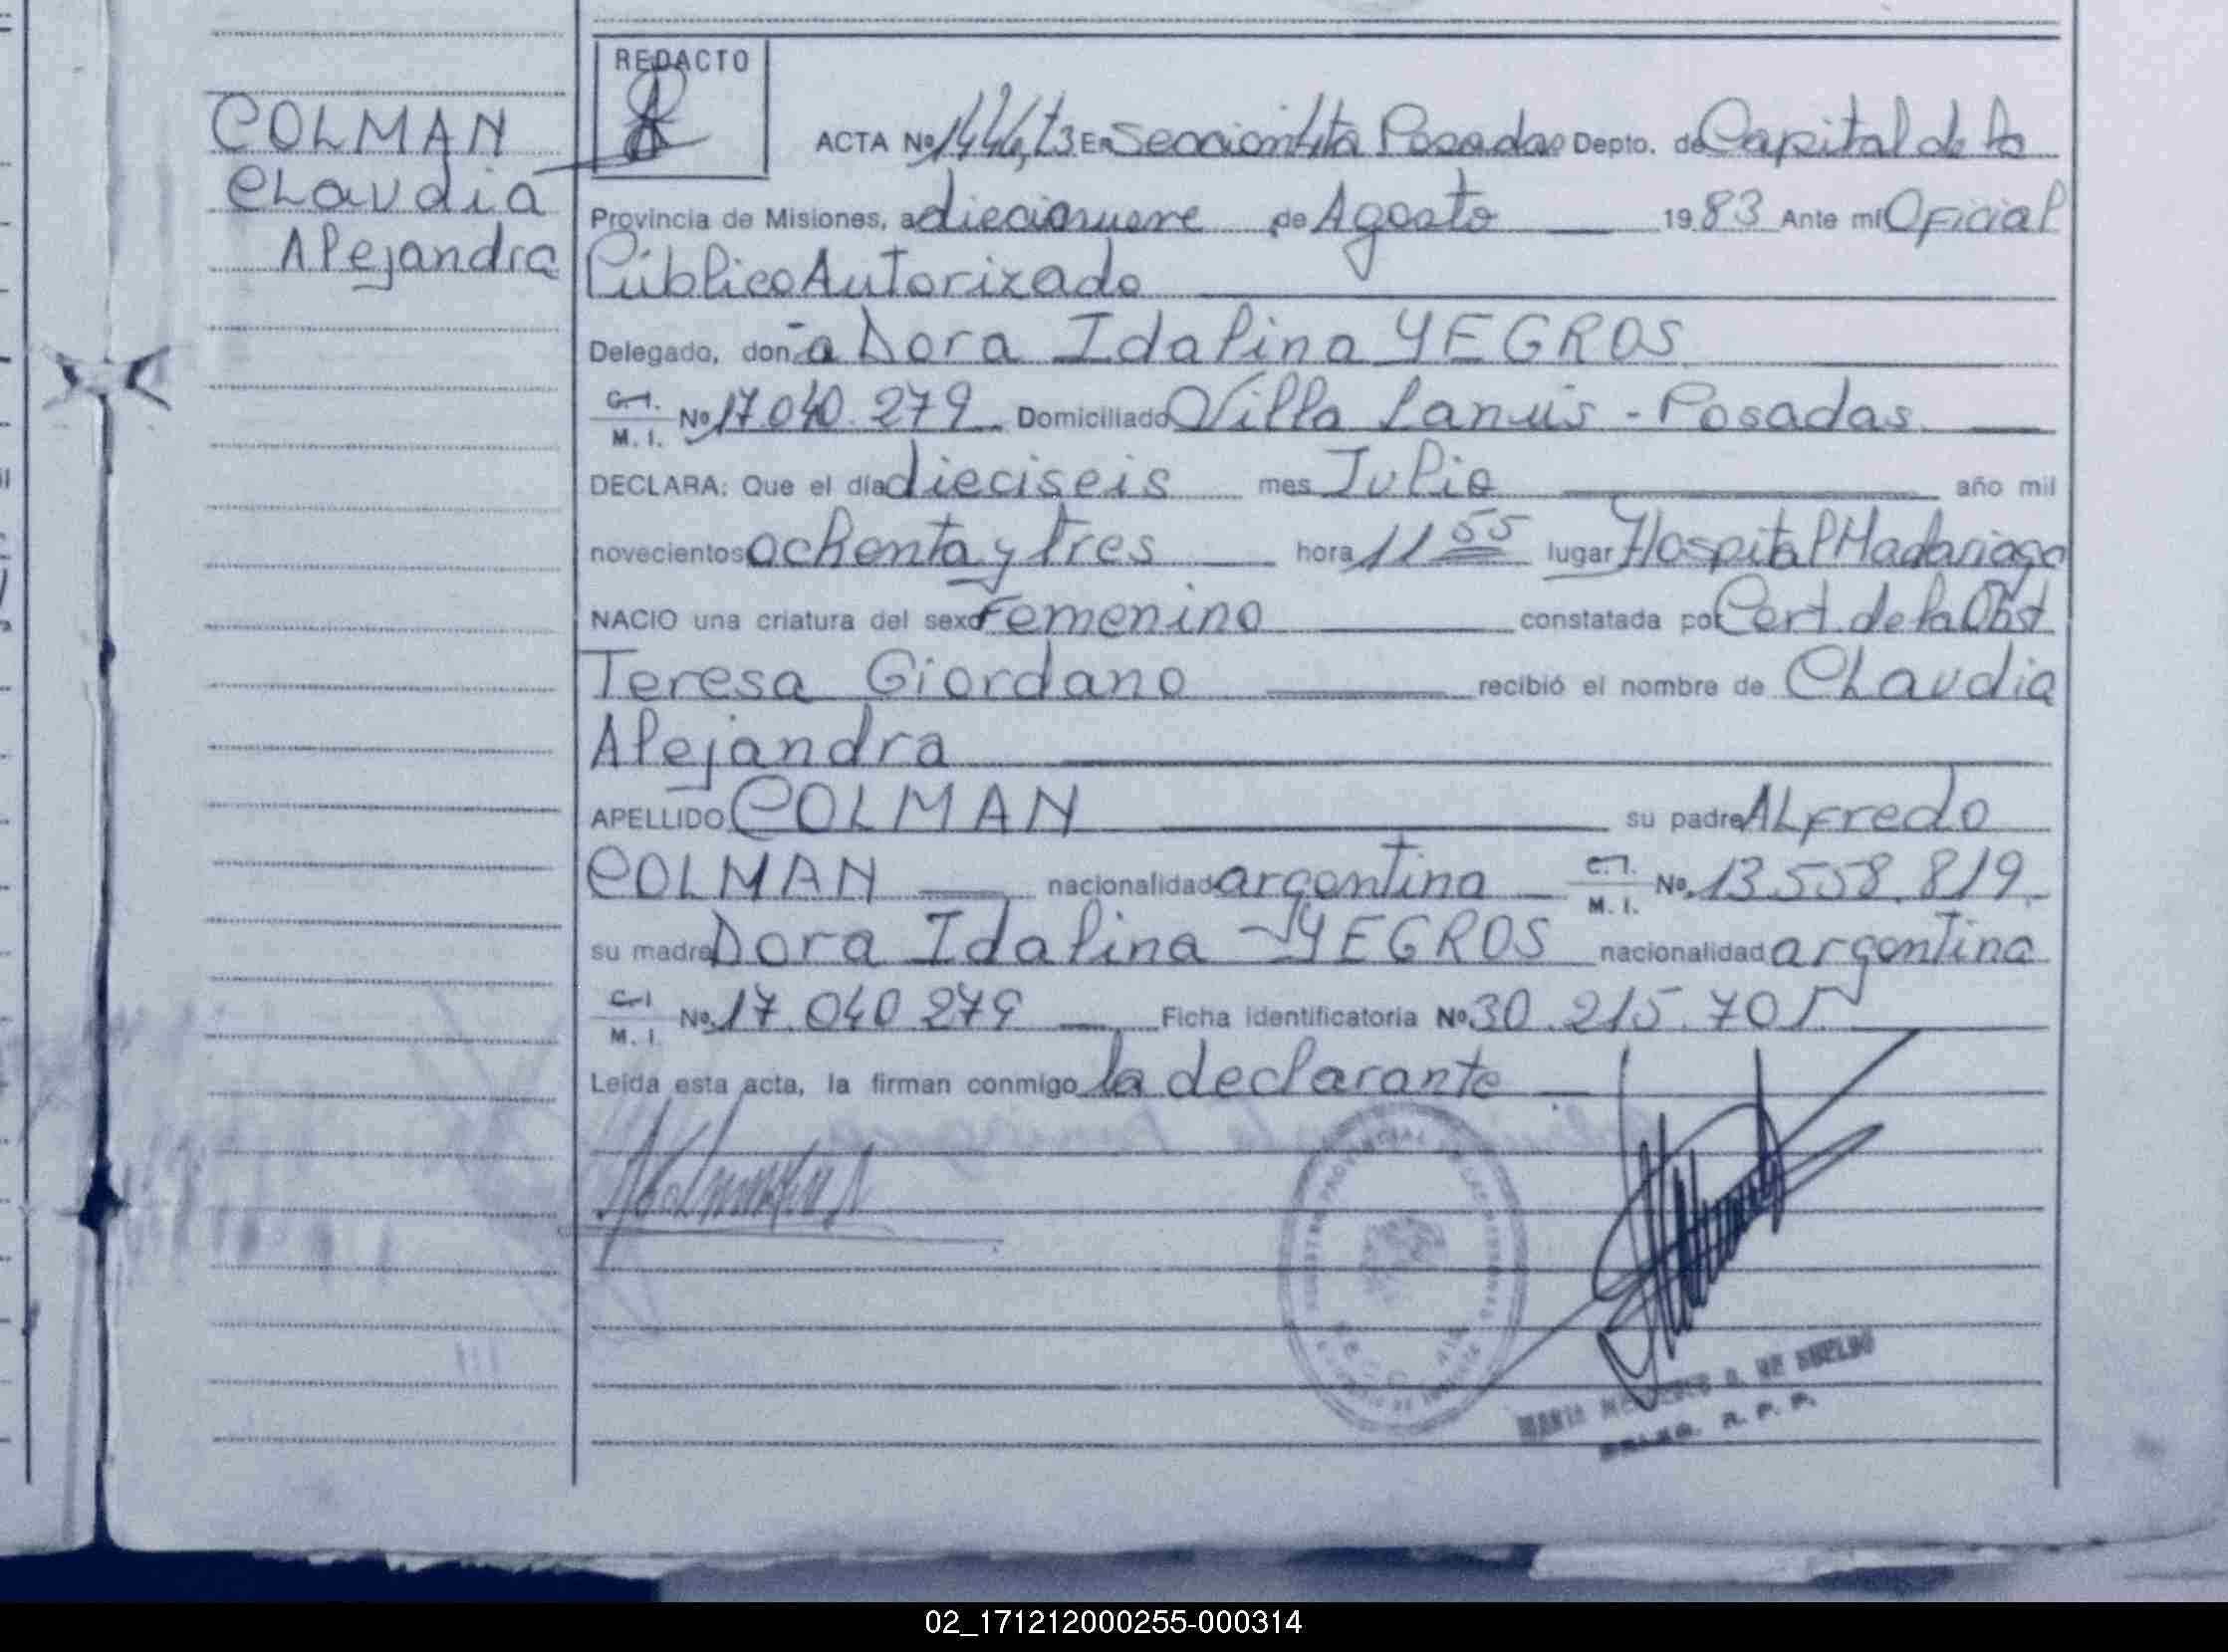 REDACTO
COLMAN
CLaudia
Alejandra
ACTA Nº En Seccion 4ta Posadas Depto. de Capital de la
Provincia de Misiones, a diecinueve de Agosto 1983 Ante mi Oficial
Público Autorizado
Delegado, don a Dora Idalina YEGROS
C.I. M. I. Nº 17.040.279 Domiciliado Villa Lanús - Posadas
DECLARA: Que el día dieciseis mes Julio año mil
novecientos ochenta y tres hora 11 55 lugar Hospital Madariaga
NACIO una criatura del sexo Femenino constatada por Cert. de la Obst
Teresa Giordano recibió el nombre de CLaudia
Alejandra
APELLIDO COLMAN su padre ALFredo
COLMAN nacionalidad argentina C.I. M. I. Nº 13.558.819.
su madre Dora Idalina YEGROS nacionalidad argentina
C.I. M. I. Nº 17.040 279 Ficha identificatoria Nº 30.215.705
Leída esta acta, la firman conmigo la declarante
R. P. P.
02_171212000255-000314